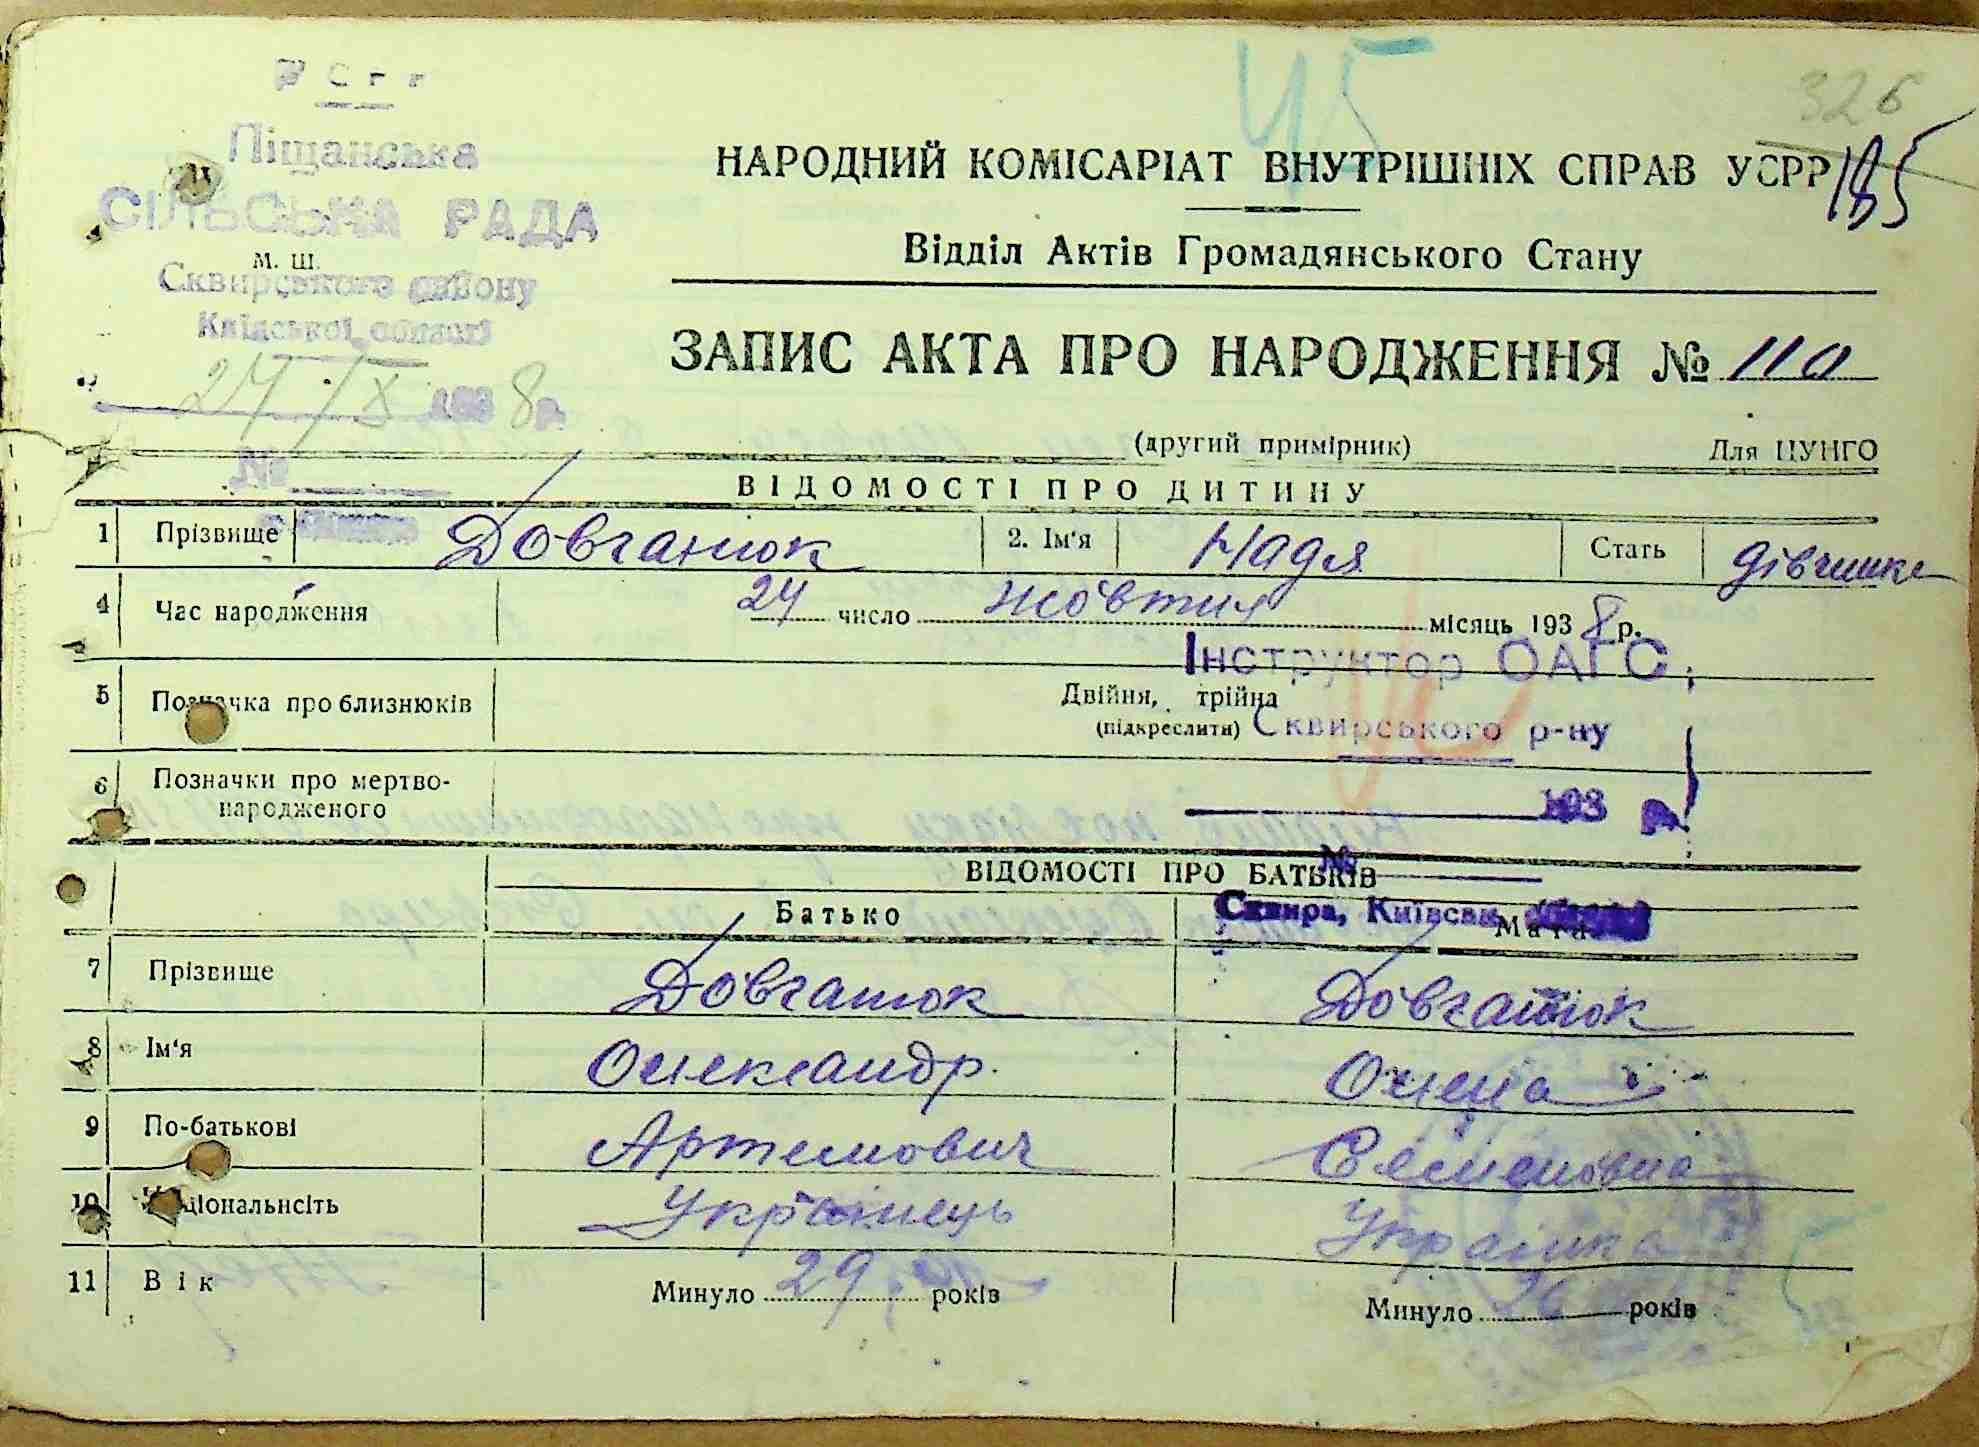 45
326
185
Піщанська
СІЛЬСЬКА РАДА
М. Ш.
Сквирського району
Київської області
24/X 1938р.
№
НАРОДНИЙ КОМІСАРІАТ ВНУТРІШНІХ СПРАВ УСРР
Відділ Актів Громадянського Стану
ЗАПИС АКТА ПРО НАРОДЖЕННЯ № 110
(другий примірник) Для ЦУНГО
ВІДОМОСТІ ПРО ДИТИНУ
1 Прізвище Довганюк 2. Ім'я Надя Стать дівчинка
4 Час народження 24 число жовтня місяць 1938 р.
Інструктор ОАГС
5 Позначка про близнюків Двійня, трійна
(підкреслити) Сквирського р-ну
6 Позначки про мертво-
народженого
193 р.
ВІДОМОСТІ ПРО БАТЬКІВ
№
Батько Мати
Сквира, Київськ.
7 Прізвище Довганюк Довганюк
8 Ім'я Олександр Олена
9 По-батькові Артемович Семенівна
10 Національнсіть Українець Українка
11 Вік Минуло 29 років Минуло 26 років